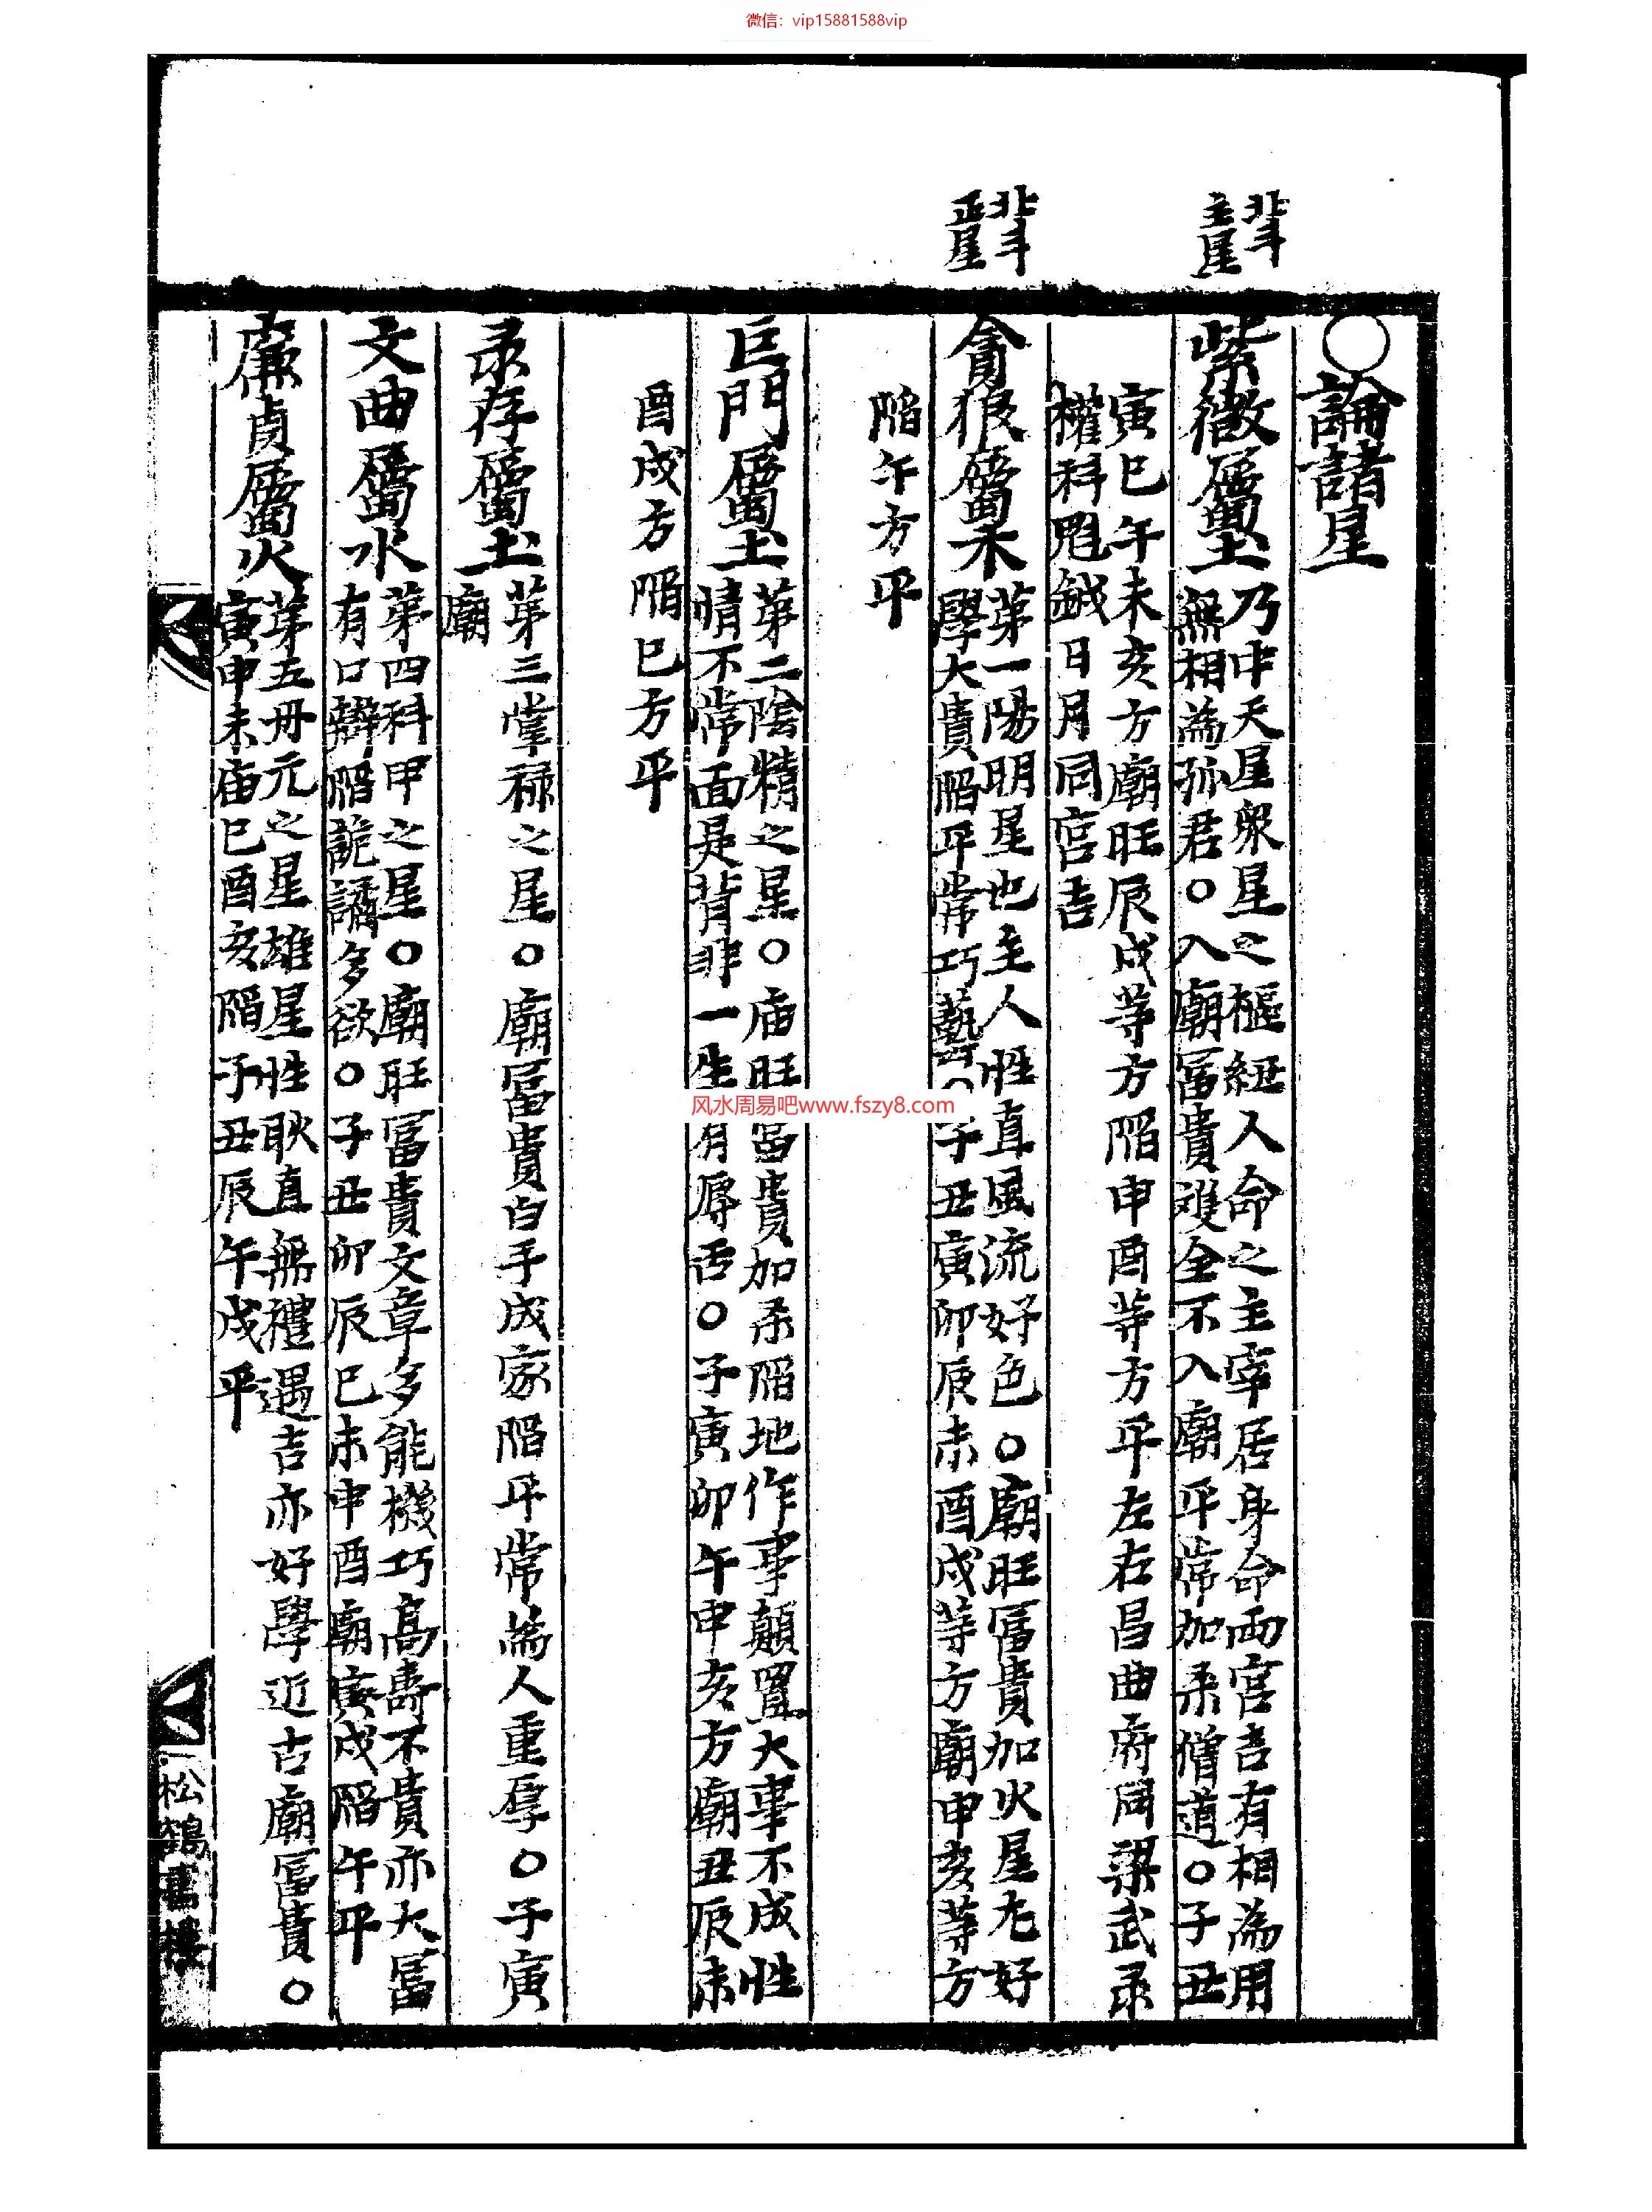 微信：vip15881588vip
北斗
主星
北斗
正星
〇論諸星
紫微屬土
乃中天星衆星之樞紐人命之主宰居身命両宫吉有相為用
無相為孤君〇入廟冨貴雙全不入廟平常加杀僧道〇子丑
寅巳午未亥方廟旺辰戌等方陷申酉等方平左右昌曲府同梁武彔
權科魁鉞日月同宫吉
貪狼屬木
苐一陽明星也主人性直風流好色〇廟旺冨貴加火星尢好
學大貴陷平常巧藝〇子丑寅卯辰未酉戌等方廟申亥等方
陷午方平
巨門屬土
苐二陰精之星〇庙旺冨貴加杀陷地作事顛置大事不成性
情不常面是背非一生有辱舌〇子寅卯午申亥方廟丑辰未
酉戌方陷巳方平
彔存屬土
苐三掌禄之星〇廟冨貴白手成家陷平常為人重厚〇子寅
廟
文曲屬水
苐四科甲之星〇廟旺冨貴文章多能機巧高壽不貴亦大冨
有口辯陷詭譎多欲〇子丑卯辰巳未申酉廟寅戌陷午平
廉貞屬火
苐五丹元之星雄星性耿直無禮遇吉亦好學近古廟冨貴〇
寅申未庙巳酉亥陷子丑辰午戌平
松鶴書樓
风水周易吧www.fszy8.com